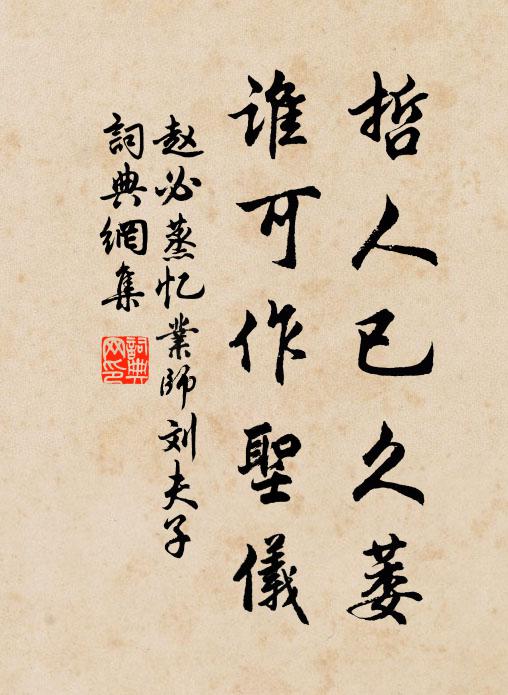 哲人已久萎
谁可作聖儀
赵必蒸忆業师刘夫子
詞典網集
詞典
网印